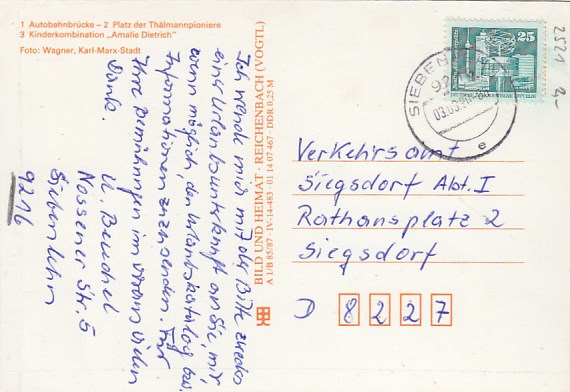 1 Autobahnbrücke – 2 Platz der Thälmannpioniere
3 Kinderkombination „Amalie Dietrich"
Foto: Wagner, Karl-Marx-Stadt
Ich wende mich mit der Bitte zwecks
einer Urlaubsunterkunft an Sie, mir
wenn möglich, den Urlaubskatalog bzw.
Informationen zuzusenden. Für
Ihre Bemühungen im voraus vielen
Dank.
U. Beuchel
Nossener Str. 5
Siebenlehn
9216
BILD UND HEIMAT · REICHENBACH (VOGTL)
A 1/B 85/87 · IV-14-483 · 01 14 07 467 · DDR 0,25 M
25
DDR
SIEBEN
03.03.90
e
2521
2,-
Verkehrsamt
Siegsdorf Abt. I
Rathausplatz 2
Siegsdorf
D 8227